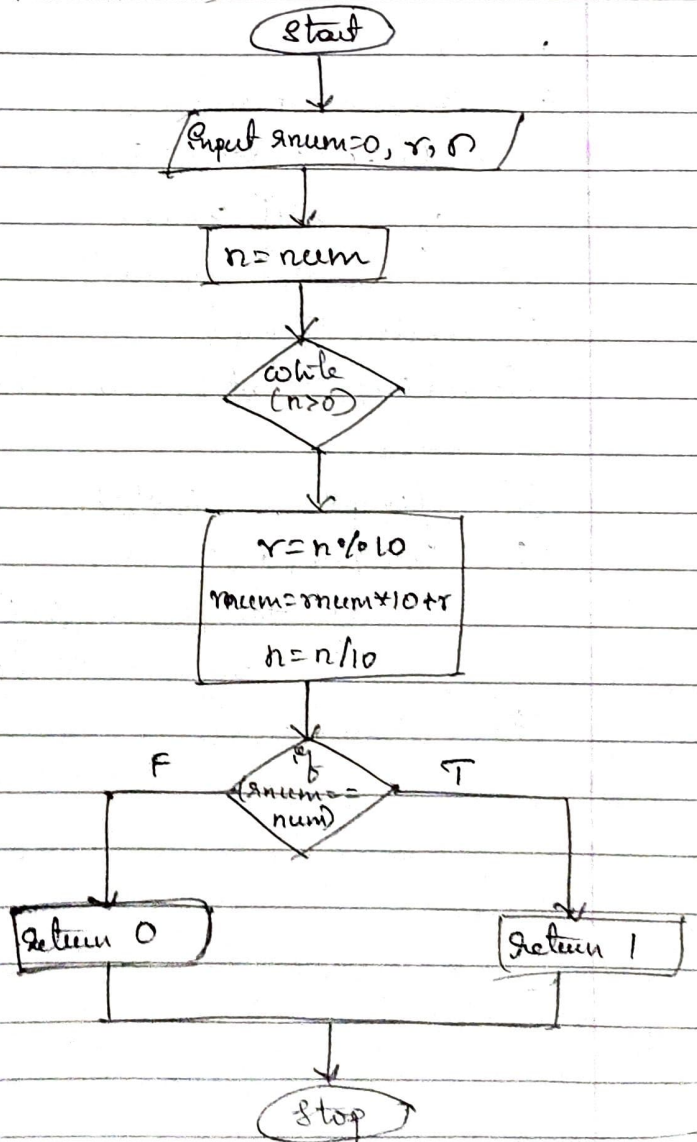 Start
Input rnum=0, r, n
n=num
while
(n>0)
r=n%10
rnum=rnum*10+r
n=n/10
F
if
T
(rnum==
num)
return 0
return 1
Stop